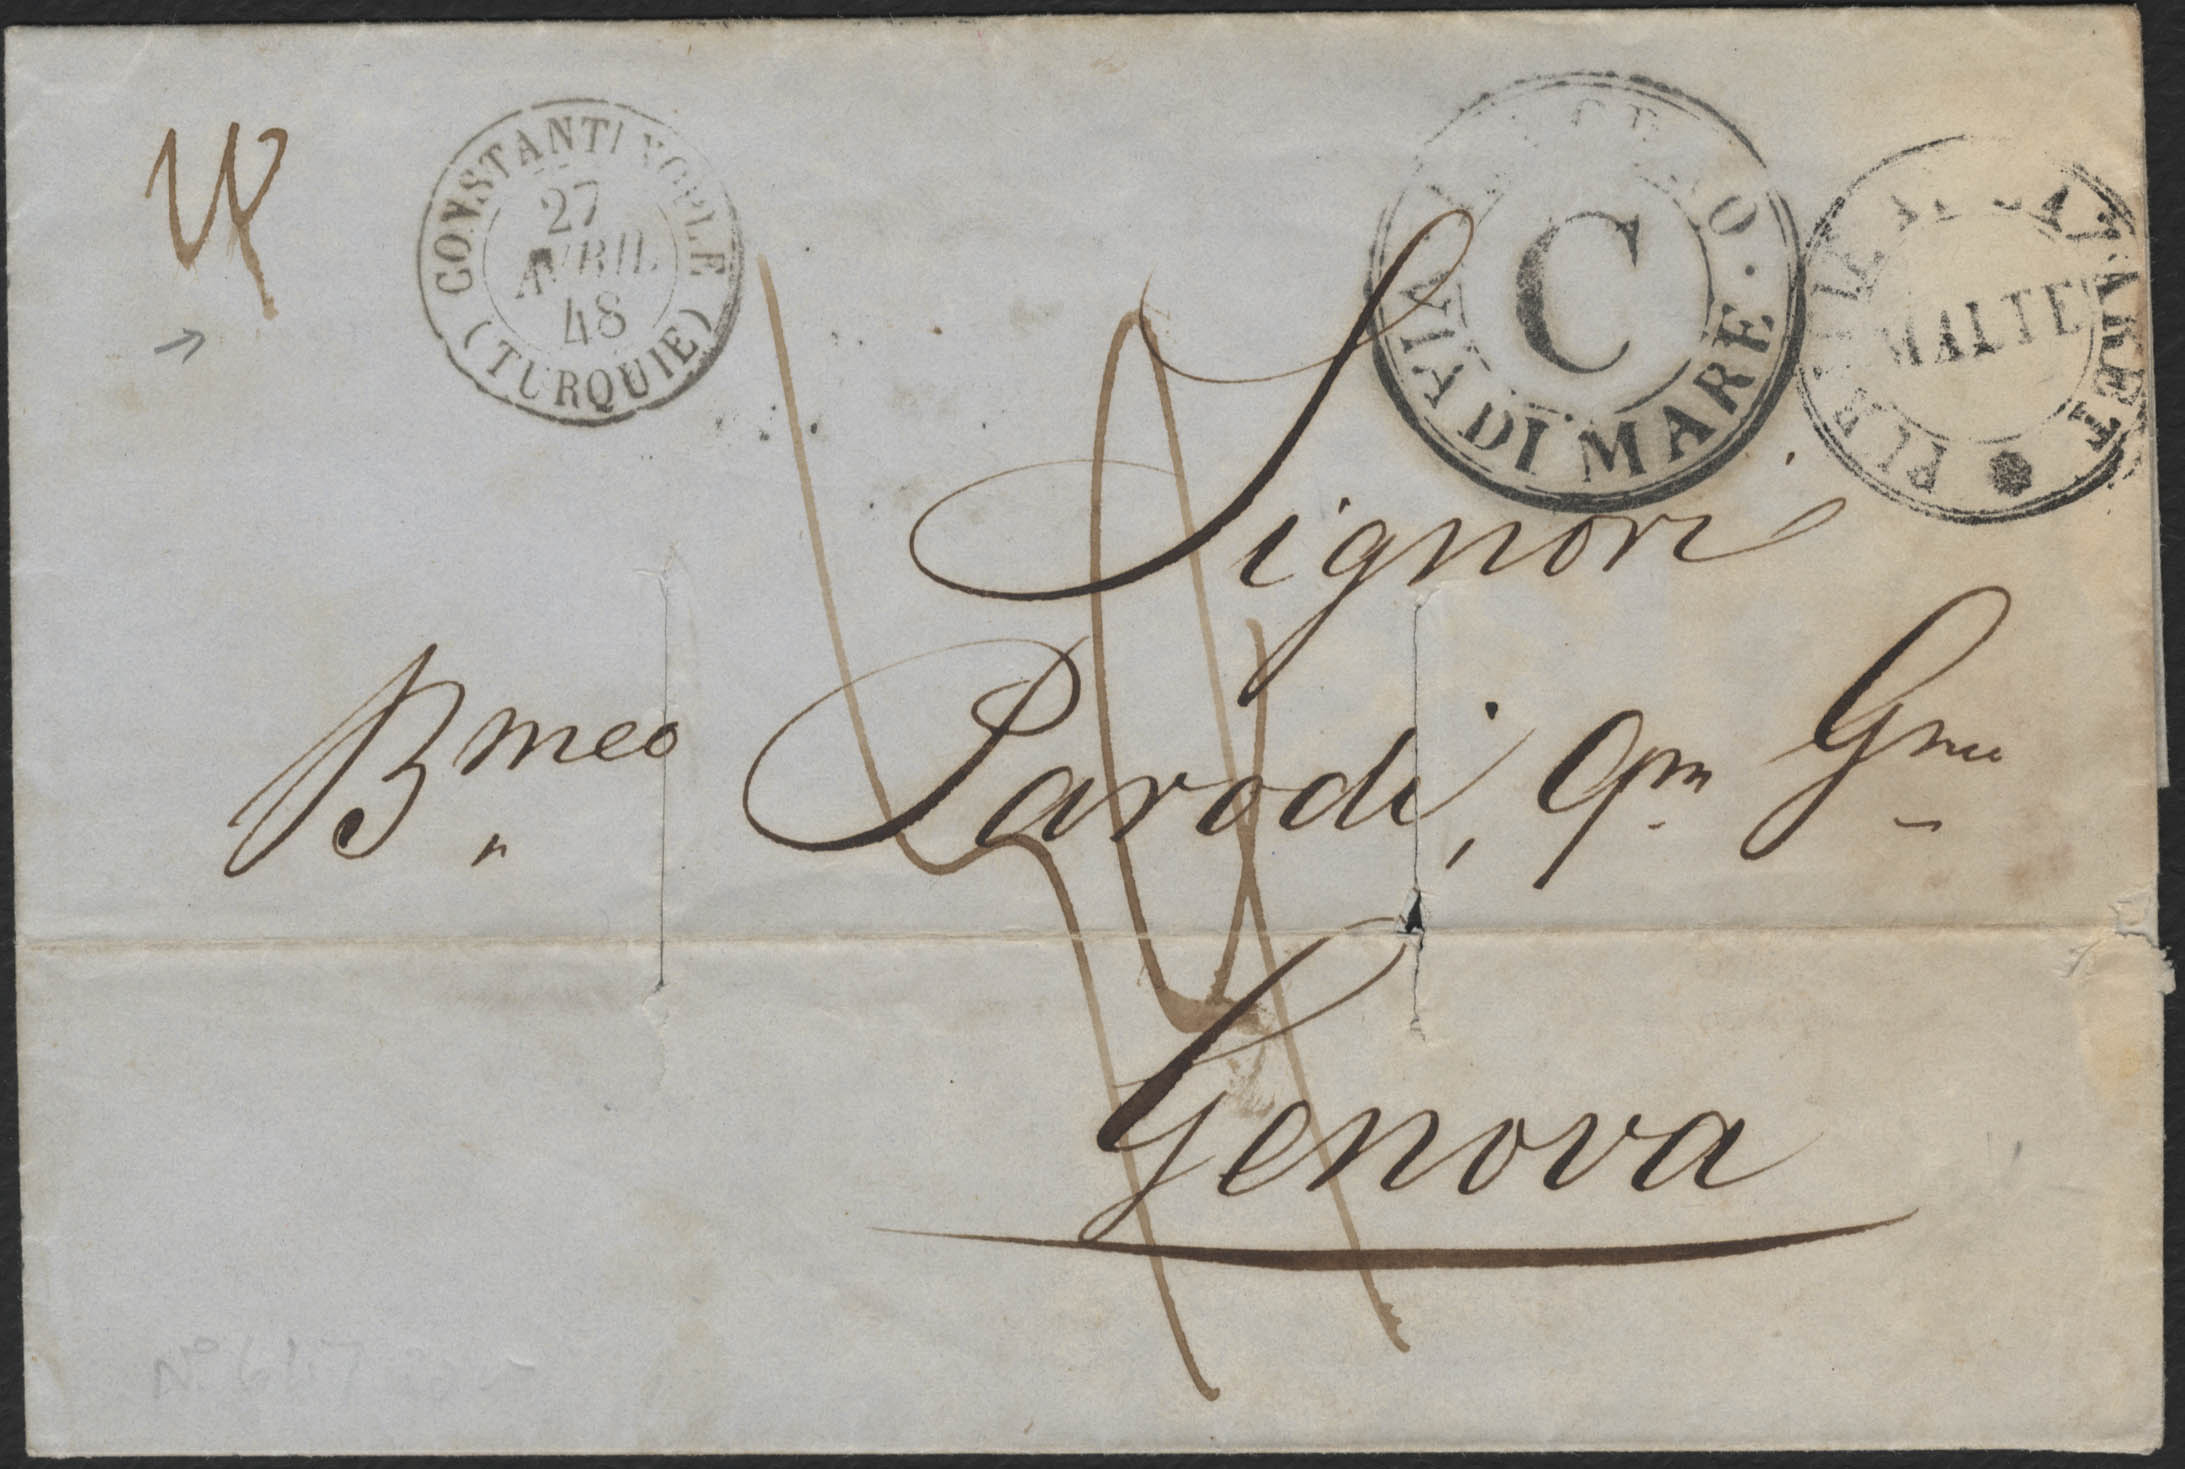 CONSTANTINOPLE
27
AVRIL
48
(TURQUIE)
C
VIA DI MARE
MALTE
Signori
Bmeo Parodi, qm Gmo
Genova